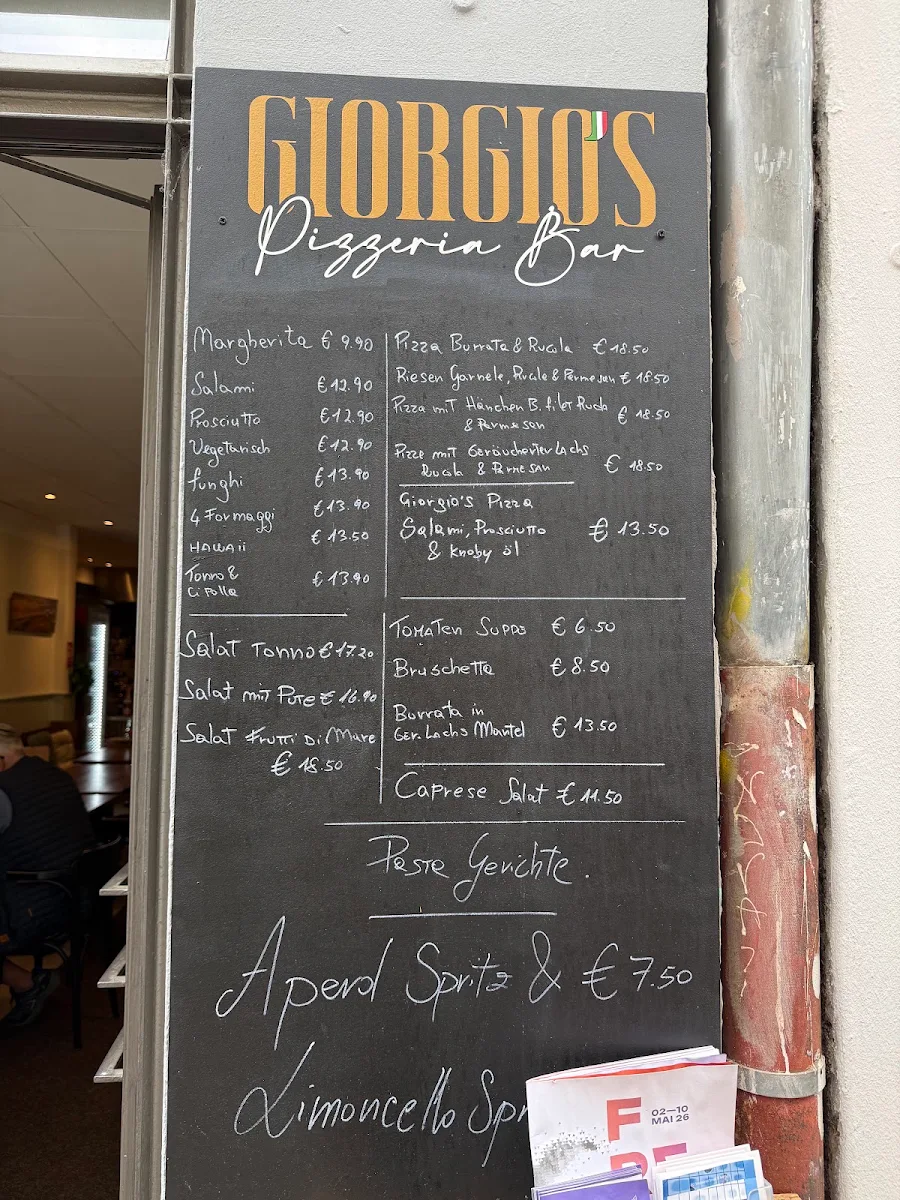 GIORGIO'S
Pizzeria Bar
Margherita € 9.90
Salami €12.90
Prosciutto €12.90
Vegetarisch €12.90
funghi €13.90
4 Formaggi €13.90
HAWAii €13.50
Tonno &
Cipolla €13.90
Pizza Burrata & Rucola €18.50
Riesen Garnele, Rucola & Parmesan € 18.50
Pizza mit Hänchen B. filet Rucola
& Parmesan € 18.50
Pizza mit Geräucherter Lachs
Rucola & Parmesan € 18.50
Giorgio's Pizza
Salami, Prosciutto € 13.50
& Knoby öl
Salat Tonno €17.20
Salat mit Pute € 16.90
Salat Frutti Di Mare
€ 18.50
Tomaten Suppe € 6.50
Bruschetta € 8.50
Burrata in
Ger. Lachs Mantel € 13.50
Caprese Salat € 11.50
Pasta Gerichte.
Aperol Spritz & € 7.50
Limoncello Spr
F
02—10
MAI 26